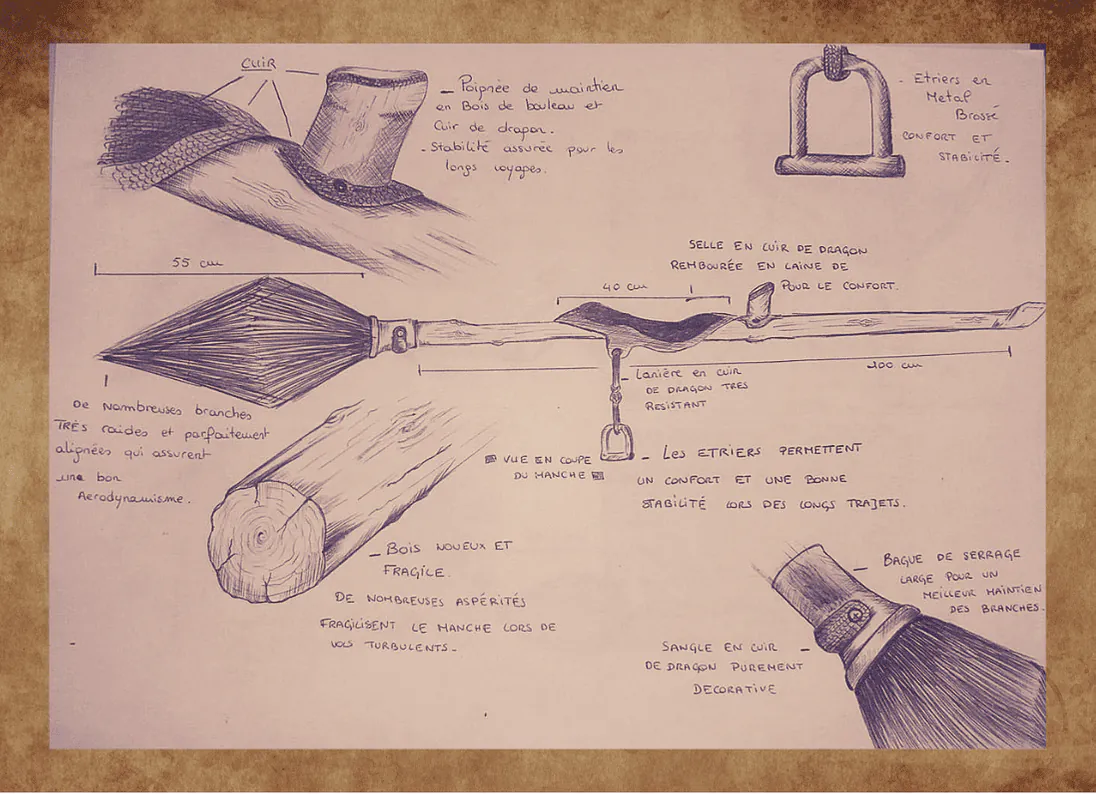 CUIR
_ Poignée de maintien
en Bois de bouleau et
Cuir de dragon.
- Stabilité assurée pour les
longs voyages.
- Etriers en
Metal
Brossé
CONFORT ET
STABILITÉ.
55 cm
SELLE EN CUIR DE DRAGON
REMBOURÉE EN LAINE DE
POUR LE CONFORT.
40 cm
200 cm
_ Lanière en cuir
DE DRAGON TRES
RESISTANT
De Nombreuses branches
TRÈS raides et parfaitement
alignées qui assurent
une bon
Aerodynamisme.
VUE EN COUPE
DU MANCHE
_ Les ETRIERS PERMETTENT
UN CONFORT ET UNE BONNE
STABILITÉ LORS DES LONGS TRAJETS.
_ BOIS NOUEUX ET
FRAGILE.
DE NOMBREUSES ASPÉRITÉS
FRAGILISENT LE MANCHE LORS DE
VOLS TURBULENTS.
_ BAGUE DE SERRAGE
LARGE POUR UN
MEILLEUR MAINTIEN
DES BRANCHES.
SANGLE EN CUIR _
DE DRAGON PUREMENT
DECORATIVE